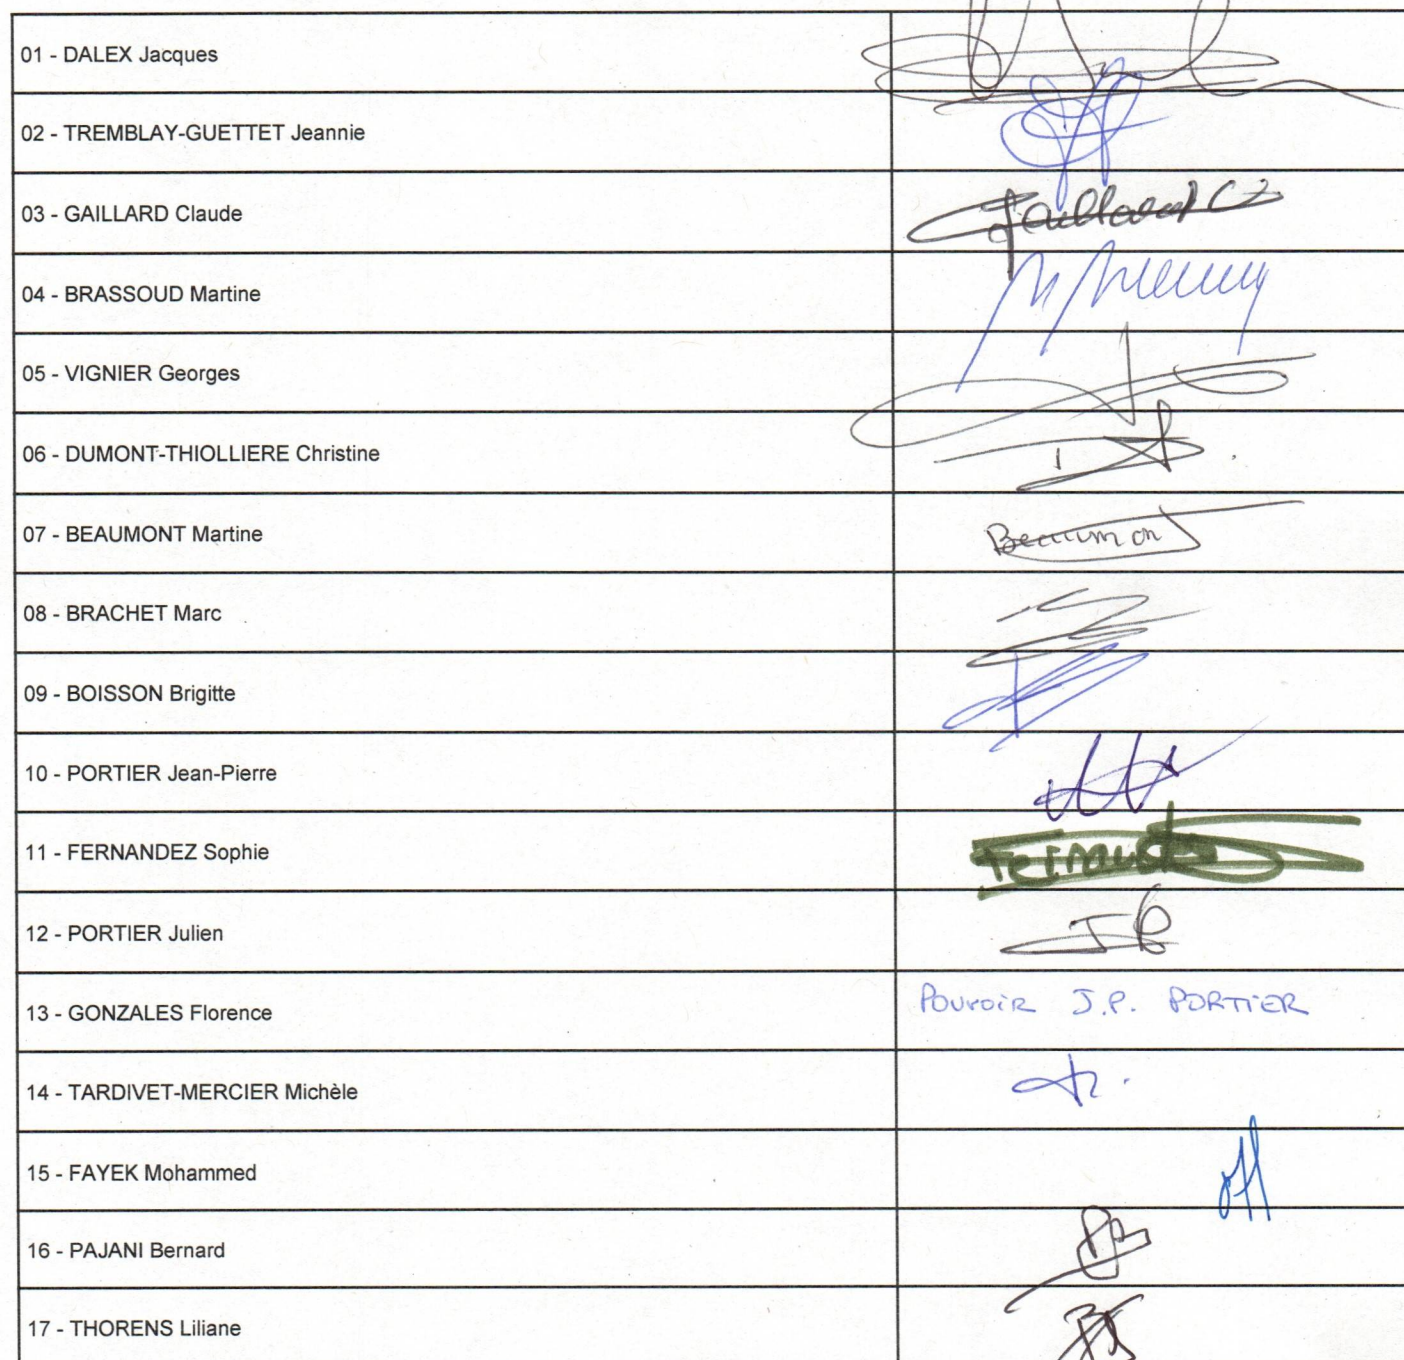 01 - DALEX Jacques
02 - TREMBLAY-GUETTET Jeannie
03 - GAILLARD Claude
Gaillard Cl
04 - BRASSOUD Martine
05 - VIGNIER Georges
06 - DUMONT-THIOLLIERE Christine
07 - BEAUMONT Martine
Beaumont
08 - BRACHET Marc
09 - BOISSON Brigitte
10 - PORTIER Jean-Pierre
11 - FERNANDEZ Sophie
12 - PORTIER Julien
13 - GONZALES Florence
POUVOIR J.P. PORTIER
14 - TARDIVET-MERCIER Michèle
15 - FAYEK Mohammed
16 - PAJANI Bernard
17 - THORENS Liliane